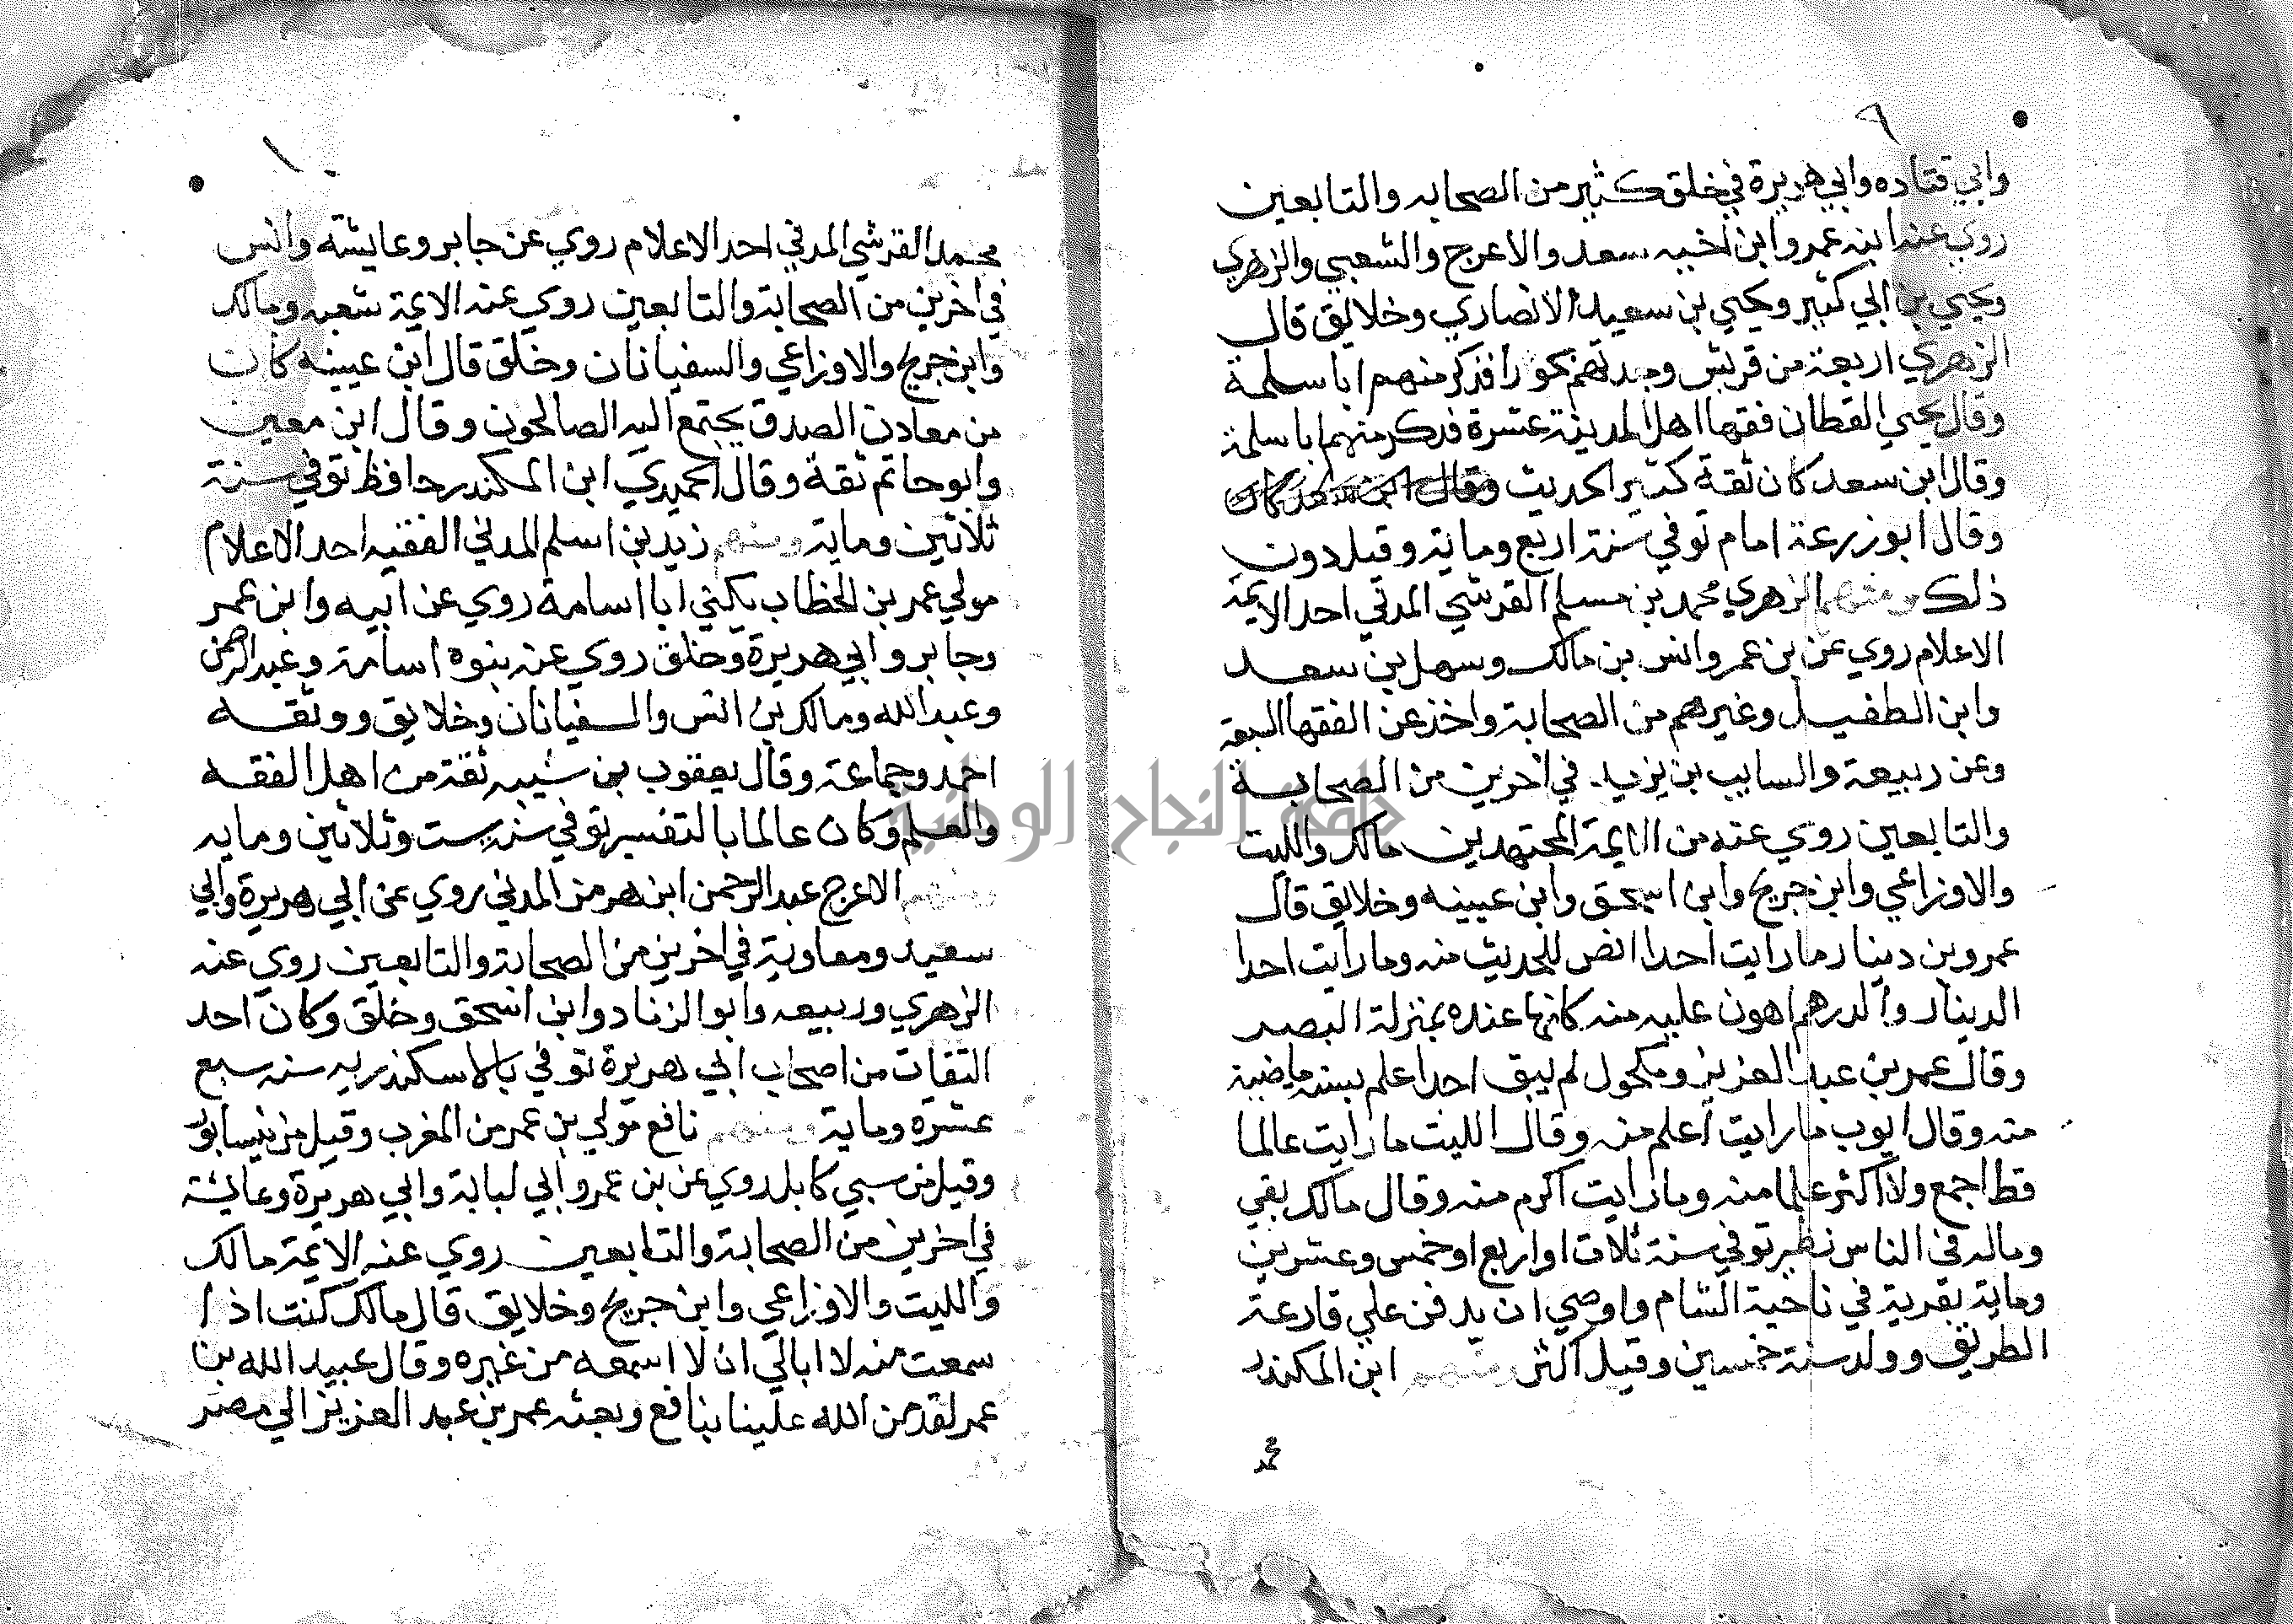 ٩
وابي قتاده وابي هريرة في خلق كثير من الصحابه والتابعين
روي عنه ابنه عمر وابن اخيه سعد والاعرج والشعبي والزهري
ويحيي بن ابي كثير ويحيي بن سعيد الانصاري وخلايق قال
الزهري اربعة من قريش وجدتهم بحورا فذكر منهم ابا سلمة
وقال يحيي القطان فقها اهل المدينة عشرة فذكر منهم ابا سلمة
وقال ابن سعد كان ثقة كثير الحديث وقال ابن سعد كان
وقال ابو زرعة امام توفي سنة اربع وماية وقيل دون
ذلك ومنهم الزهري محمد بن مسلم القرشي المدني احد الايمة
الاعلام روي عن بن عمر وانس بن مالك وسهل بن سعد
وابن الطفيل وغيرهم من الصحابة واخذ عن الفقها السبعة
وعن ربيعة والسايب بن يزيد في اخرين من الصحابة
والتابعين روي عنه من الايمة المجتهدين مالك والليث
والاوزاعي وابن جريج وابن اسحق وابن عيينه وخلايق قال
عمرو بن دينار ما رايت احدا انص للحديث منه وما رايت احدا
الدينار والدرهم اهون عليه منه كانها عنده بمنزلة البصر
وقال عمر بن عبد العزيز ومكحول لم يبق احدا علم بسنة ماضية
منه وقال ايوب ما رايت اعلم منه وقال الليث ما رايت عالما
قط اجمع ولا اكثر علما منه وما رايت اكرم منه وقال مالك بقي
وماله في الناس نظير توفي سنة ثلاث او اربع او خمس وعشرين
وماية بقرية في ناحية الشام واوصي ان يدفن علي قارعة
الطريق وولد سنة خمسين وقيل اكثر ومنهم ابن المكندر
محمد
١٠
محمد القرشي المدني احد الاعلام روي عن جابر وعايشة وانس
في اخرين من الصحابة والتابعين روي عنه الايمة شعبه ومالك
وابن جريج والاوزاعي والسفيانان وخلق قال ابن عيينه كان
من معادن الصدق يجتمع اليه الصالحون وقال ابن معين
وابو حاتم ثقة وقال الحميدي ابن المكندر حافظ توفي سنة
ثلاثين وماية ومنهم زيد بن اسلم المدني الفقيه احد الاعلام
مولي عمر بن الخطاب يكني ابا اسامة روي عن ابيه وابن عمر
وجابر وابي هريرة وخلق روي عنه بنوه اسامة وعبد الرحمن
وعبد الله ومالك بن انس والسفيانان وخلايق ووثقه
احمد وجماعة وقال يعقوب بن شيبه ثقة من اهل الفقه
والعلم وكان عالما بالتفسير توفي سنة ست وثلاثين ومايه
ومنهم الاعرج عبد الرحمن ابن هرمز المدني روي عن ابي هريرة وابي
سعيد ومعاوية في اخرين من الصحابة والتابعين روي عنه
الزهري وربيعه وابو الزناد وابن اسحق وخلق وكان احد
الثقات من اصحاب ابي هريرة توفي بالاسكندريه سنه سبع
عشرة وماية ومنهم نافع مولي بن عمر من المغرب وقيل من نيسابور
وقيل من سبي كابل روي عن بن عمر وابي لبابة وابي هريرة وعايشة
في اخرين من الصحابة والتابعين روي عنه الايمة مالك
والليث والاوزاعي وابن جريج وخلايق قال مالك كنت اذا
سمعت منه لا ابالي ان لا اسمعه من غيره وقال عبيد الله بن
عمر لقد من الله علينا بنافع وبعثه عمر بن عبد العزيز الي مصر
حلقة النجاح الوطنية